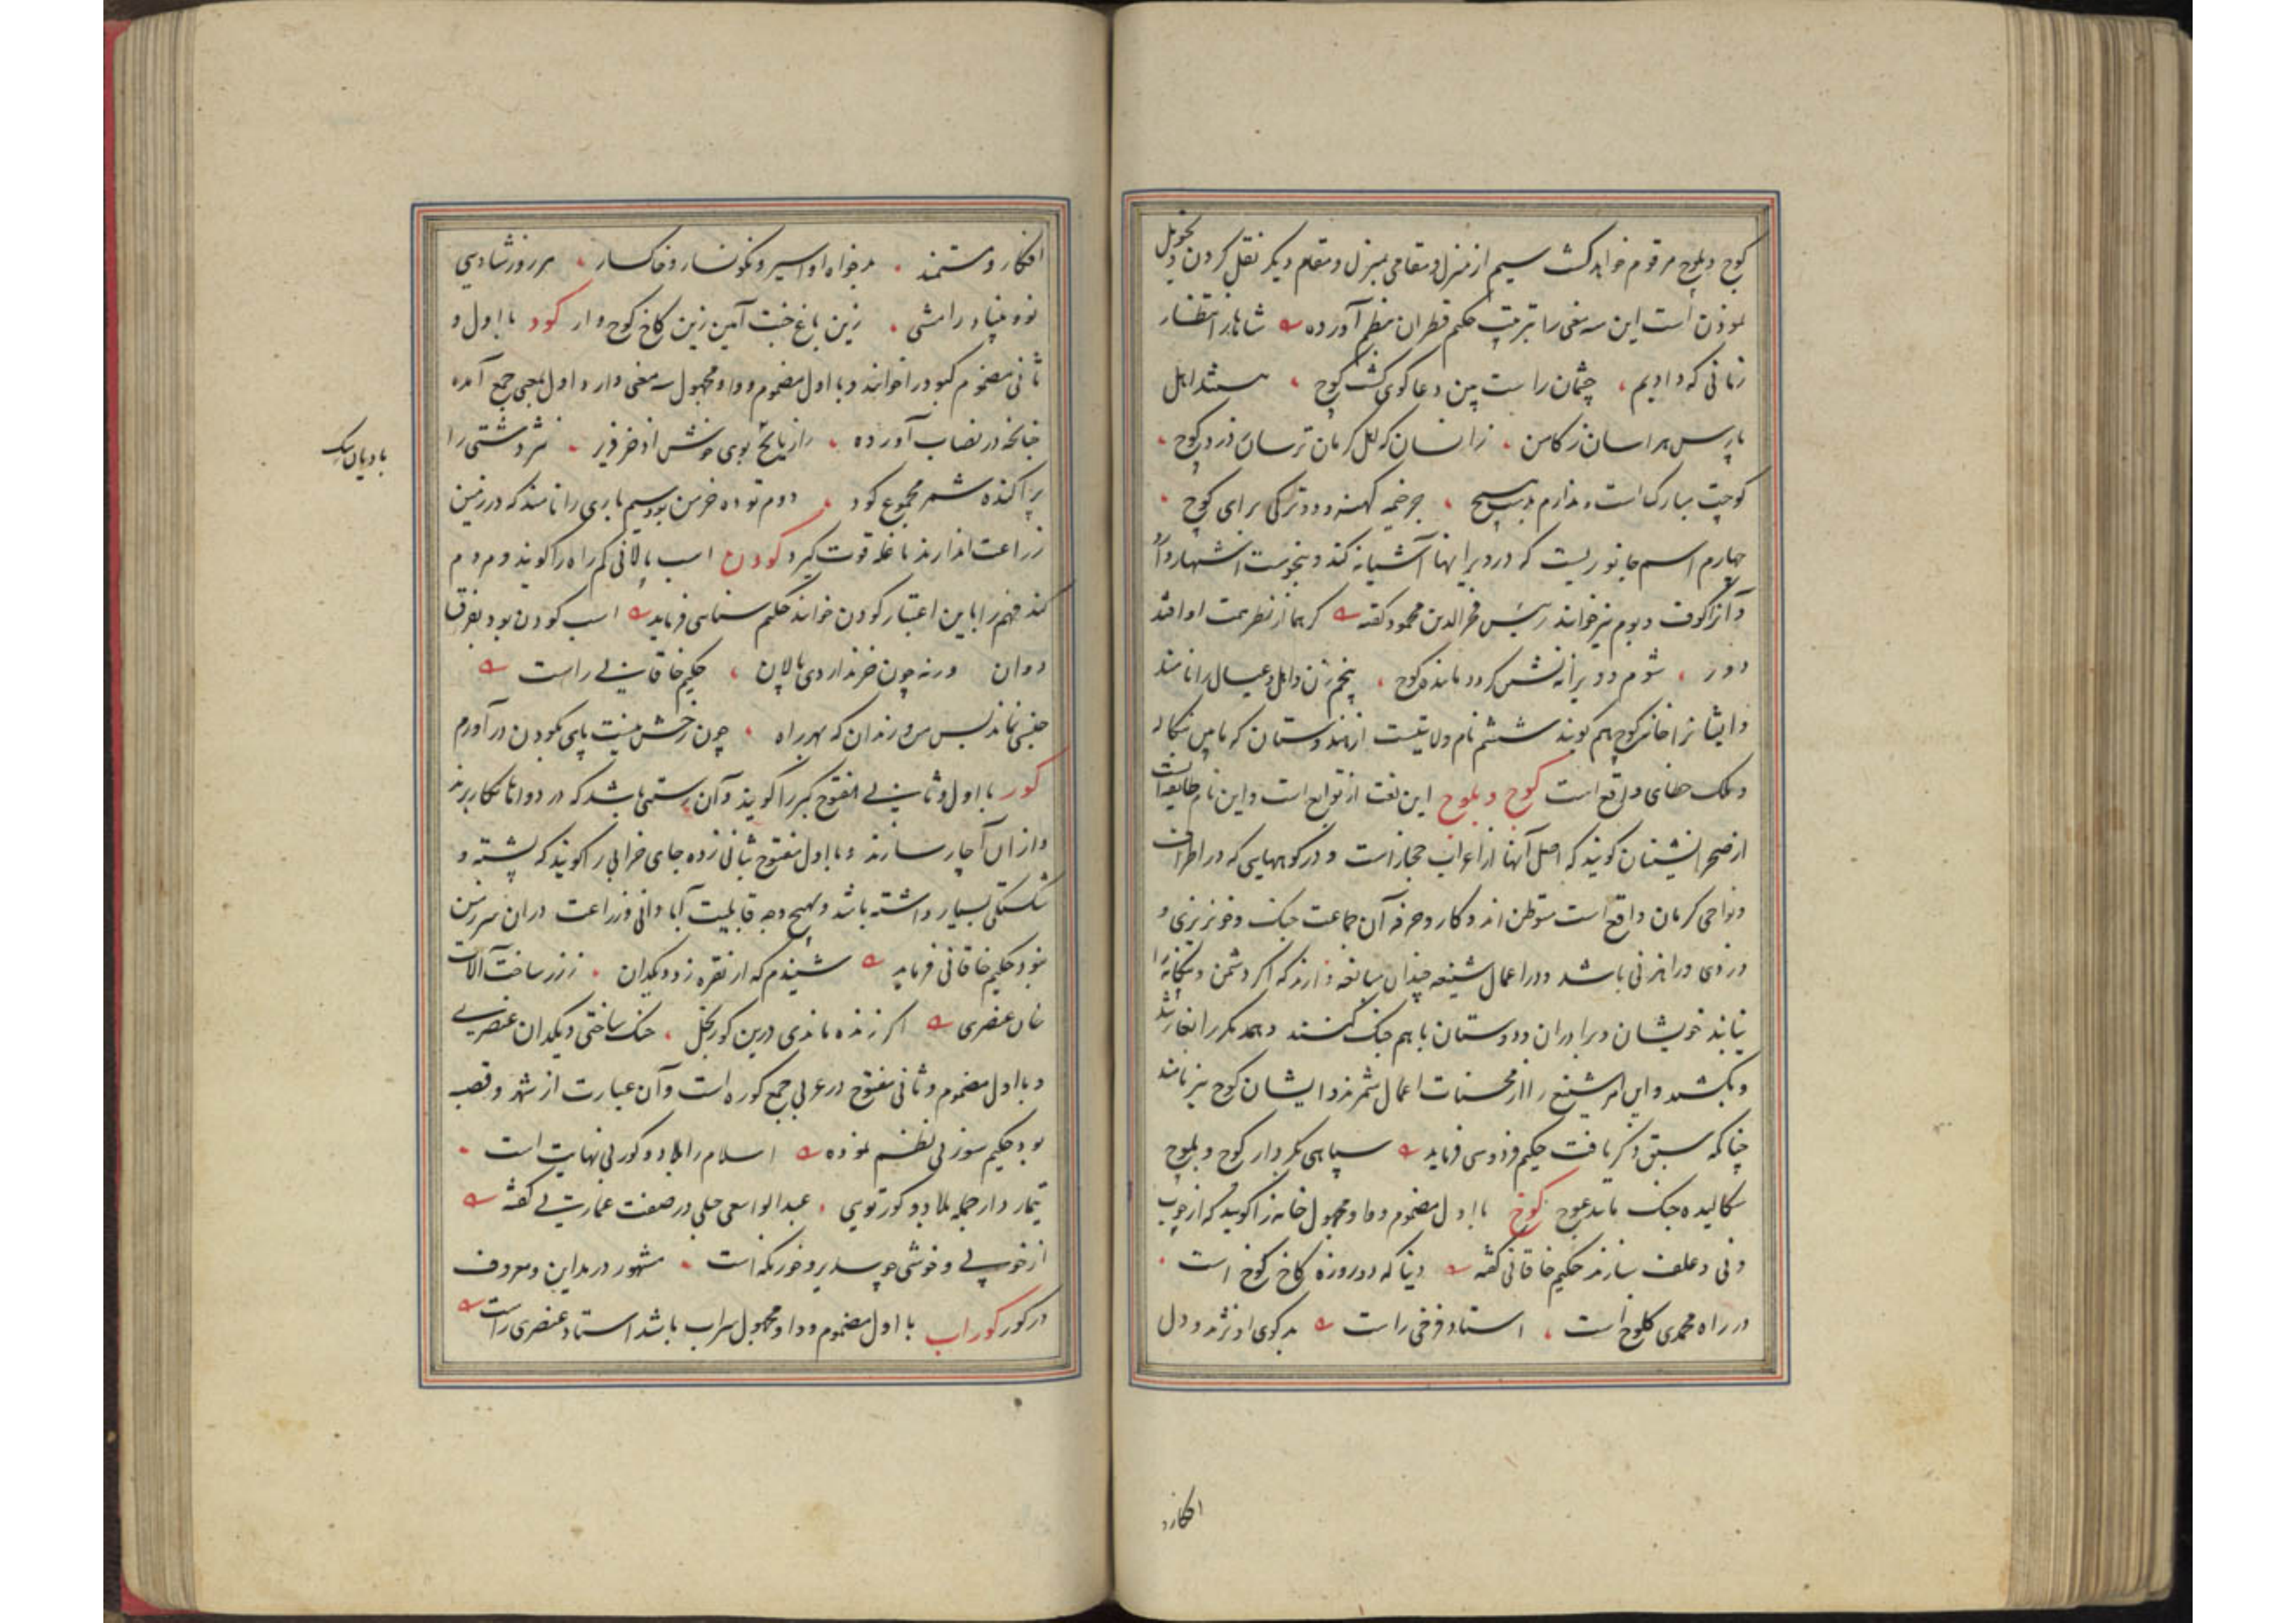 کوج و بلوج مرقوم خواهد کشت سیم از منزل و مقامی بمنزل و مقام دیکر نقل کردن و تحویل
نمودن است این سه معنی را بترتیب حکیم قطران بنظم آورده شاها در انتظار
زمانی که دادیم چشمان راست بین دعاکوی کشت کوج هستند اهل
پارس هراسان ز کامن زانسان که اهل کرمان ترسان ز دزد کوج
کوچت مبارک است ندارم بسیج جز خیمه کهنه و دو ترکی برای کوچ
چهارم اسم جانوریست که در ویرانها آشیانه کند و بنحوست اشتهار دارد
و آنرا کوف و بوم نیز خوانند رئیس فخرالدین محمود کفته کر هما از نظر همت او افتد
دور شوم و ویرانه نشین کردد مانند کوج پنجم زن و اهل و عیال را نامند
و ایشانرا خانه کوچ هم کویند ششم نام ولایتیست از هندوستان که مابین بنکاله
و ملک خطای واقع است کوج و بلوج این لغت از توابع است و این نام طایفه‌ایست
از صحرانشینان کویند که اصل آنها از اعراب حجاز است و در کوههایی که در اطراف
و نواحی کرمان واقع است متوطن اند و کار و حرفه آن جماعت جنک و خونریزی و
دزدی و راهزنی باشد و در اعمال شنیعه چندان مبالغه دارند که اکر دشمن و بیکانه را
نیابند خویشان و برادران و دوستان با هم جنک کنند و همدیکر را بغارت
و بکشند و این امر شنیع را از محسنات اعمال شمرند و ایشان کوج نیز نامند
چنانکه سبق ذکر یافت حکیم فردوسی فرماید سپاهی بکردار کوج و بلوج
سکالیده جنک مانند عوج کوخ با اول مضموم و واو مجهول خانه را کویند که از چوب
و نی و علف سازند حکیم خاقانی کفته دنیا که دو روزه کاخ کوخ است
در راه محمدی کلوخ است استاد فرخی راست بدکوی او نژند و دل
افکار و
افکار و مستمند بدخواه او اسیر و نکونسار و خاکسار هر روز شادیی
نو و بنیاد رامشی زین باغ جنت آیین زین کاخ کوخ وار کود با اول و
ثانی مضموم کبود را خوانند و با اول مضموم و واو مجهول سه معنی دارد اول بمعنی جمع آمده
چنانچه در نصاب آورده رازیانج بوی خوش اذخر فریز نثر دشتی را
بادیان
پراکنده شمر مجموع کود دوم توده خرمن بود سیم باری را نامند که در زمین
زراعت اندازند تا غله قوت کیرد کودن اسب پالانی کم راه را کویند و مردم
کند فهم را باین اعتبار کودن خوانند حکیم سنایی فرماید اسب کودن بود بغرقا
دوان ورنه چون خر نداردی پالان حکیم خاقانی راست
جنبی نماند بس من و رندان که بهر راه چون رخش نیست پای بکودن درآورم
کور با اول و ثانی مفتوح کبر را کویند و آن رستنی باشد که در دواها بکار برند
و از آن آچار سازند و با اول مفتوح بثانی زده جای خرابی را کویند که پشته و
شکستکی بسیار داشته باشد و بهیچ وجه قابلیت آبادانی و زراعت در آن سرزمین
نبود حکیم خاقانی فرماید شنیدم که از نقره زد دیکدان ز زر ساخت آلات
خان عنصری اکر زنده ماندی درین کور بخل خنک ساختی دیکدان عنصری
و با اول مضموم و ثانی مفتوح در عربی جمع کوره است و آن عبارت از شهر و قصبه
بود حکیم سوزنی نظم نموده اسلام را بلاد و کور بی نهایت است
تیمار دار جمله بلاد و کور تویی عبدالواسع جبلی در صفت عمارتی کفته
از خوبی و خوشی چو سدیر و خورنکه است مشهور در مداین و معروف
در کور کوراب با اول مضموم و واو مجهول سراب باشد استاد عنصری راست